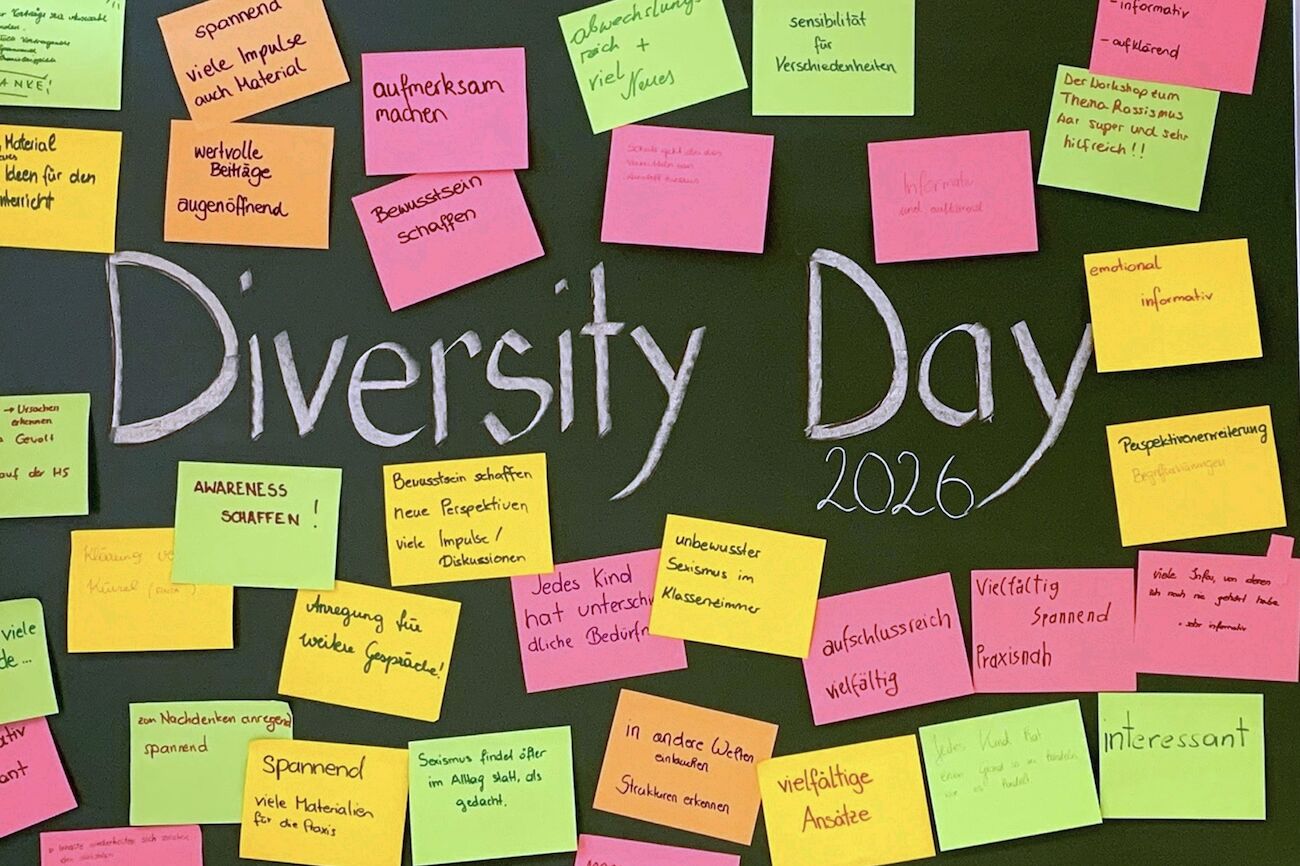 spannend
viele Impulse
auch Material
aufmerksam
machen
abwechslungs
reich +
viel
Neues
sensibilität
für
Verschiedenheiten
- informativ
- aufklärend
Der Workshop zum
Thema Rassismus
War super und sehr
hilfreich!!
ANKE!
Material
Ideen für den
nterricht
wertvolle
Beiträge
augenöffnend
Bewusstsein
schaffen
Informativ
und aufklärend
emotional
informativ
Diversity Day
2026
→ Ursachen
erkennen
Gewalt
auf der HS
AWARENESS
SCHAFFEN!
Bewusstsein schaffen
neue Perspektiven
viele Impulse/
Diskussionen
Perspektivenerweiterung
Klärung
Anregung für
weitere Gespräche!
Jedes Kind
hat unterschi
dliche Bedürfn
unbewusster
Sexismus im
Klassenzimmer
aufschlussreich
vielfältig
Vielfältig
Spannend
Praxisnah
viele Infos, von denen
ich noch nie gehört habe
- sehr informativ
viele
de ...
ativ
ant
zum Nachdenken anregend
spannend
Spannend
viele Materialien
für die Praxis
Sexismus findet öfter
im Alltag statt, als
gedacht.
in andere Welten
eintauchen
Strukturen erkennen
vielfältige
Ansätze
Jedes Kind hat
einen Grund so zu handeln
wie es handelt
interessant